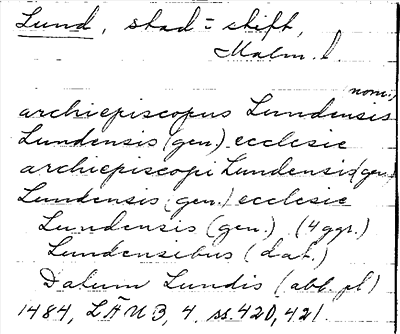 Lund, stad = stift,
Malm. l.
nom.)
archiepiscopus Lundensis
Lundensis (gen.) ecclesie
archiepiscopi Lundensis (gen.)
Lundensis (gen.) ecclesie
Lundensis (gen.) (4 ggr.)
Lundensibus (dat.)
Datum Lundis (abl. pl)
1484, LÄU B, 4. ss. 420, 421.